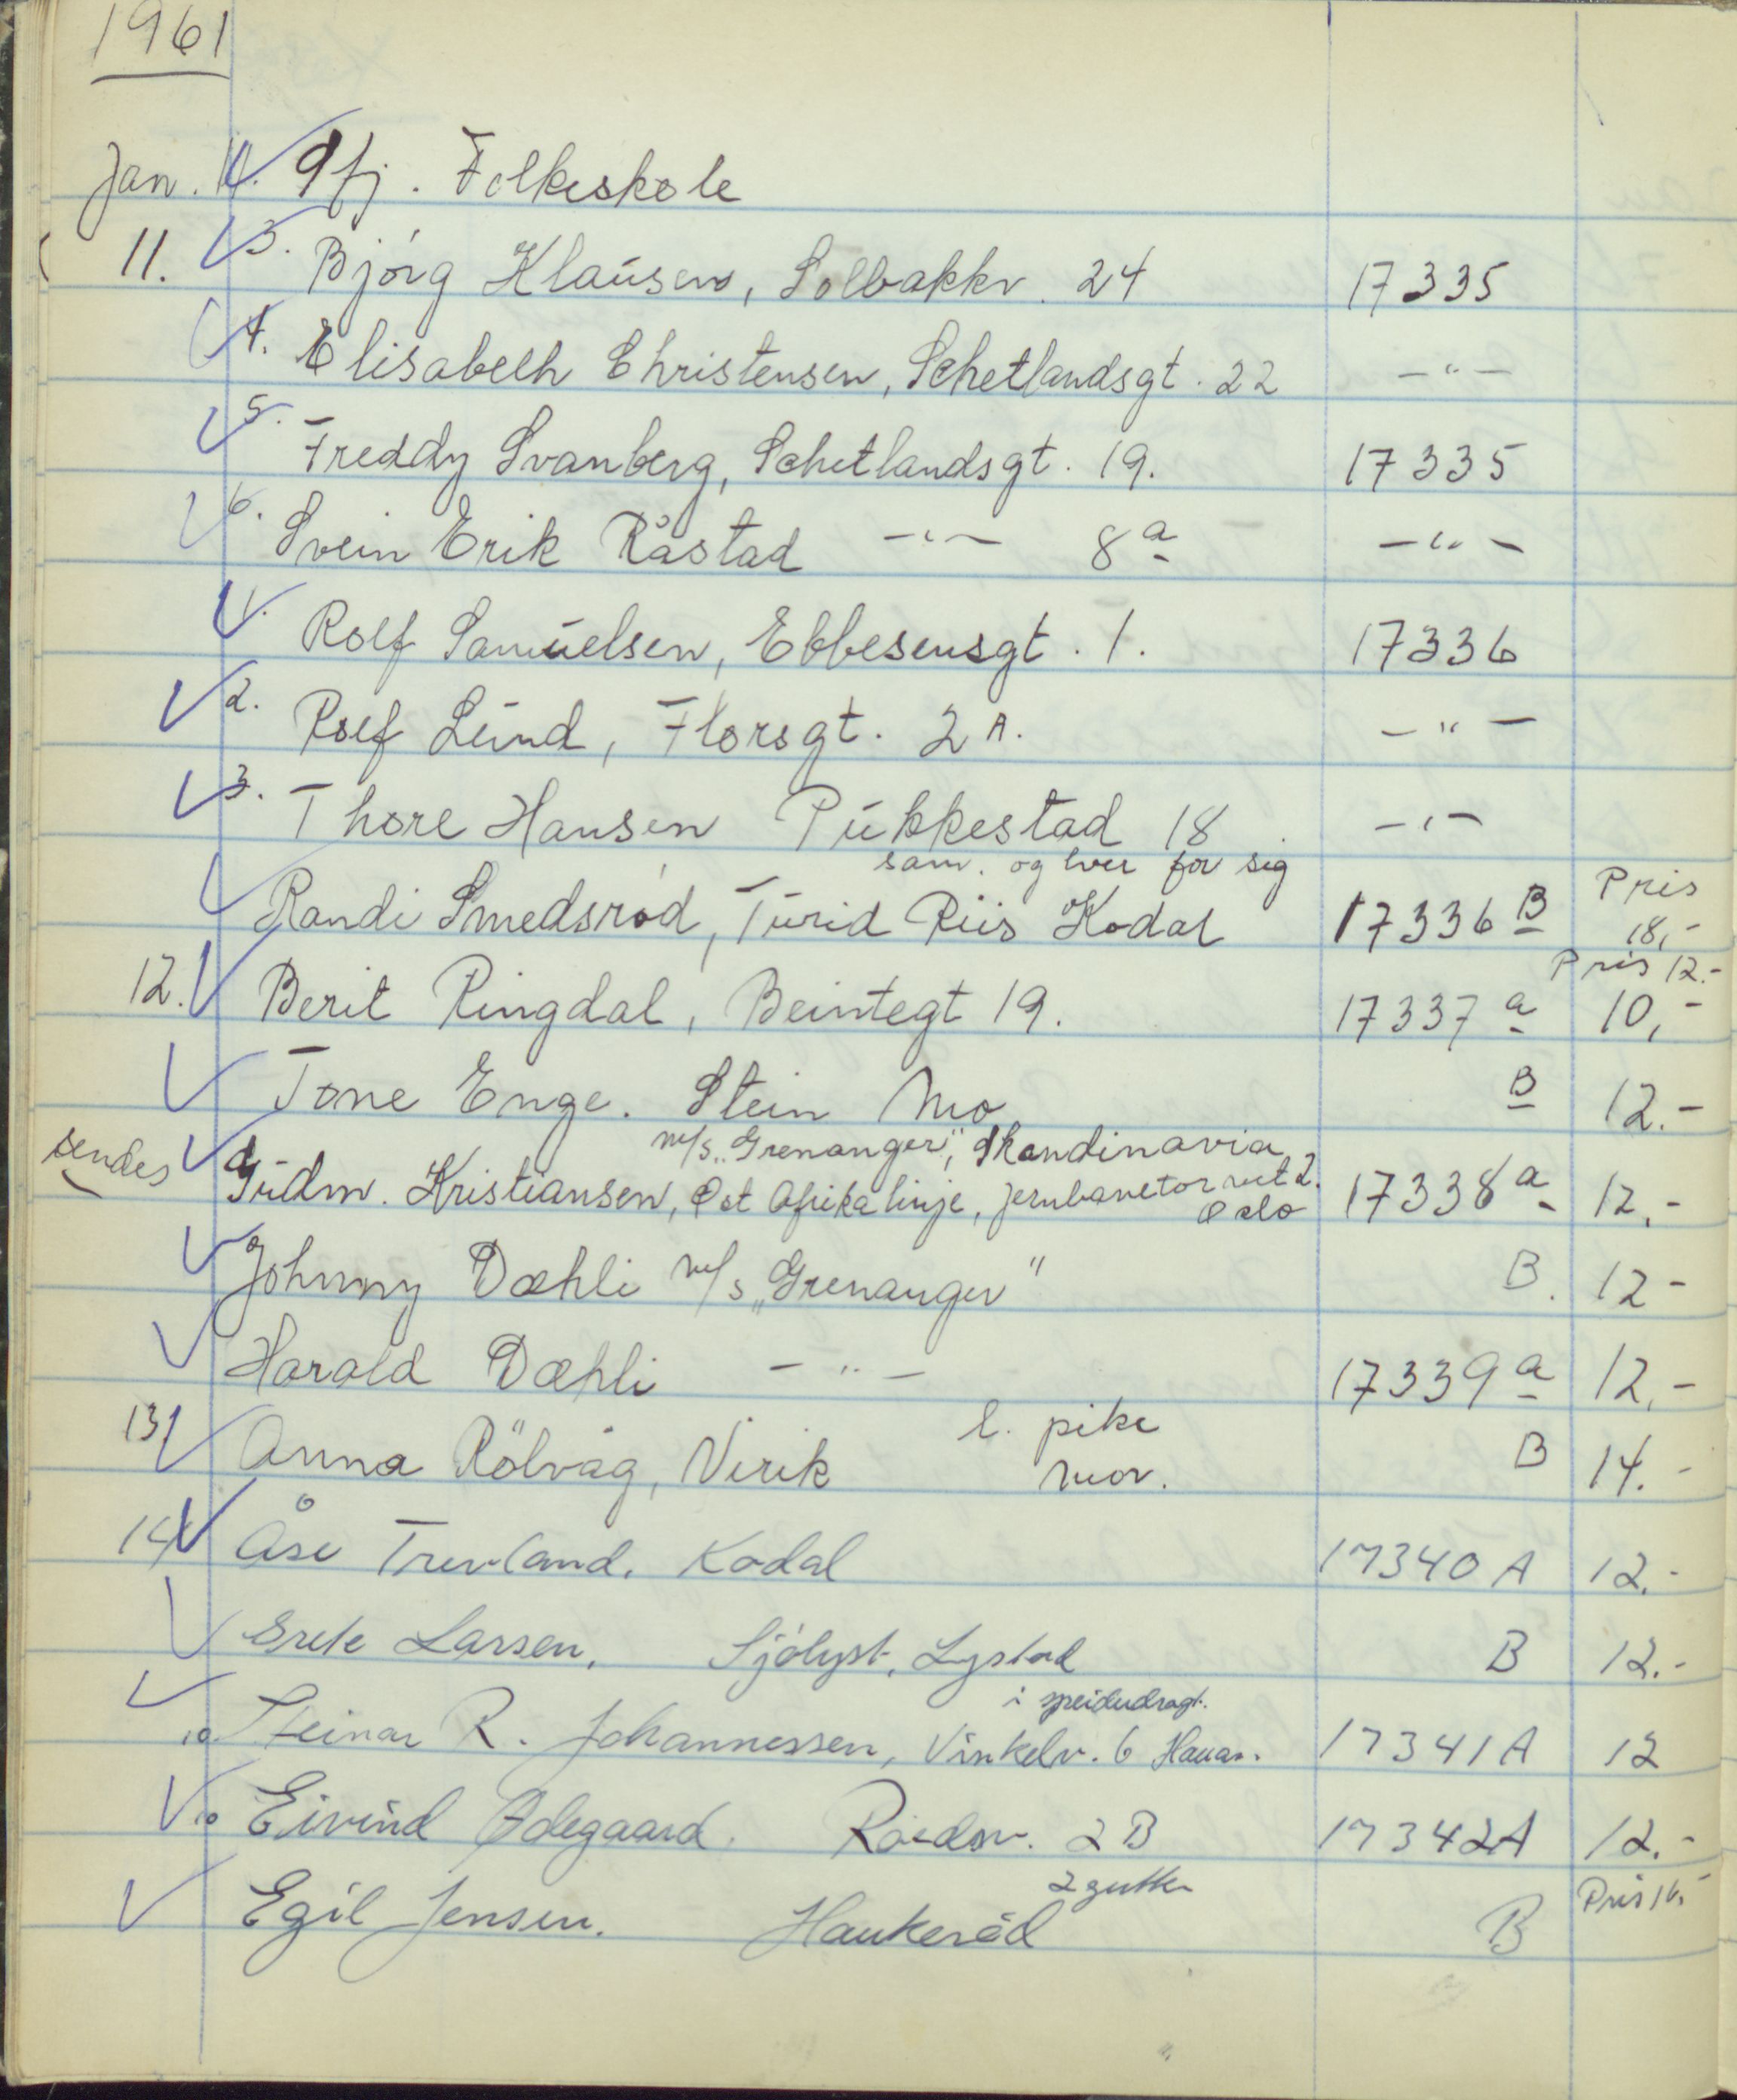 1961
Jan. 11. Sfj. Folkeskole
11. 3. Bjørg Klausen, Solbakkv. 24 17335
4. Elisabeth Christensen, Schetlandsgt. 22 — " —
5. Freddy Svanberg, Schetlandsgt. 19. 17335
6. Svein Erik Råstad — " — 8a — " —
1. Rolf Samuelsen, Ebbesensgt. 1. 17336
2. Rolf Lund, Florsgt. 2A. — " —
3. Thore Hansen Pukkestad 18 — " —
sam. og hver for sig Pris
Randi Smedsrød, Turid Riis Kodal 17336 B 18,-
Pris 12.-
12. Berit Ringdal, Beintegt 19. 17337 a 10,-
Tone Enge. Stein Mo B 12.-
sendes m/s "Grenanger", Skandinavia
Gudm. Kristiansen, Øst Afrika linje, Jernbanetorvet 2. Oslo 17338 a 12,-
Johnny Dæhli m/s "Grenanger" B. 12-
Harald Dæhli — " — 17339 a 12,-
13. Anna Rölvåg, Virik l. pike B 14.-
mor.
14. Åse Trevland, Kodal 17340 A 12.-
Grete Larsen, Sjölyst, Lystad B 12.-
i speiderdragt.
10 Steinar R. Johannessen, Vinkelv. 6 Hauan. 17341 A 12
10 Eivind Ødegaard. 2B 17342 A 12.-
2 gutter Pris 16,-
Egil Jensen. Haukeröd B